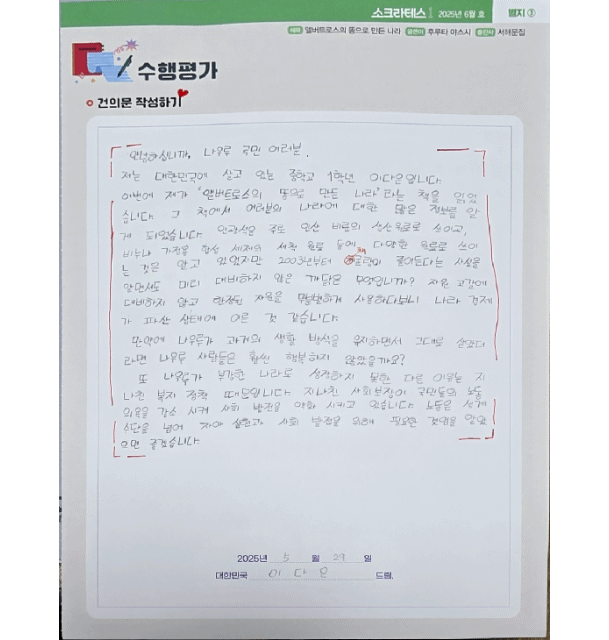 소크라테스 2025년 6월 호 별지 ③
제목 앨버트로스의 똥으로 만든 나라 글쓴이 후루타 야스시 출판사 서해문집
수행평가
건의문 작성하기
안녕하십니까, 나우루 국민 여러분.
저는 대한민국에 살고 있는 중학교 1학년 이다은입니다.
이번에 제가 '앨버트로스의 똥으로 만든 나라'라는 책을 읽었
습니다. 그 책에서 여러분의 나라에 대한 많은 정보를 알
게 되었습니다. 인광석은 주로 인산 비료의 생산 원료로 쓰이고,
비누나 가정용 합성 세제의 세척 원료 등에 다양한 원료로 쓰이
는 것은 알고 있었지만 2003년부터 줄어든다는 사실을
알면서도 미리 대비하지 않은 까닭은 무엇입니까? 자원 고갈에
대비하지 않고 한정된 자원을 무분별하게 사용하다보니 나라 경제
가 파산 상태에 이른 것 같습니다.
만약에 나우루가 과거의 생활 방식을 유지하면서 그대로 살았더
라면 나우루 사람들은 훨씬 행복하지 않았을까요?
또 나우루가 부강한 나라로 성장하지 못한 다른 이유는 지
나친 복지 정책 때문입니다. 지나친 사회보장이 국민들의 노동
의욕을 감소 시켜 사회 발전을 약화 시키고 있습니다. 노동은 생계
수단을 넘어 자아 실현과 사회 발전을 위해 필요한 것임을 알았
으면 좋겠습니다.
2025년 5 월 29 일
대한민국 이다은 드림.